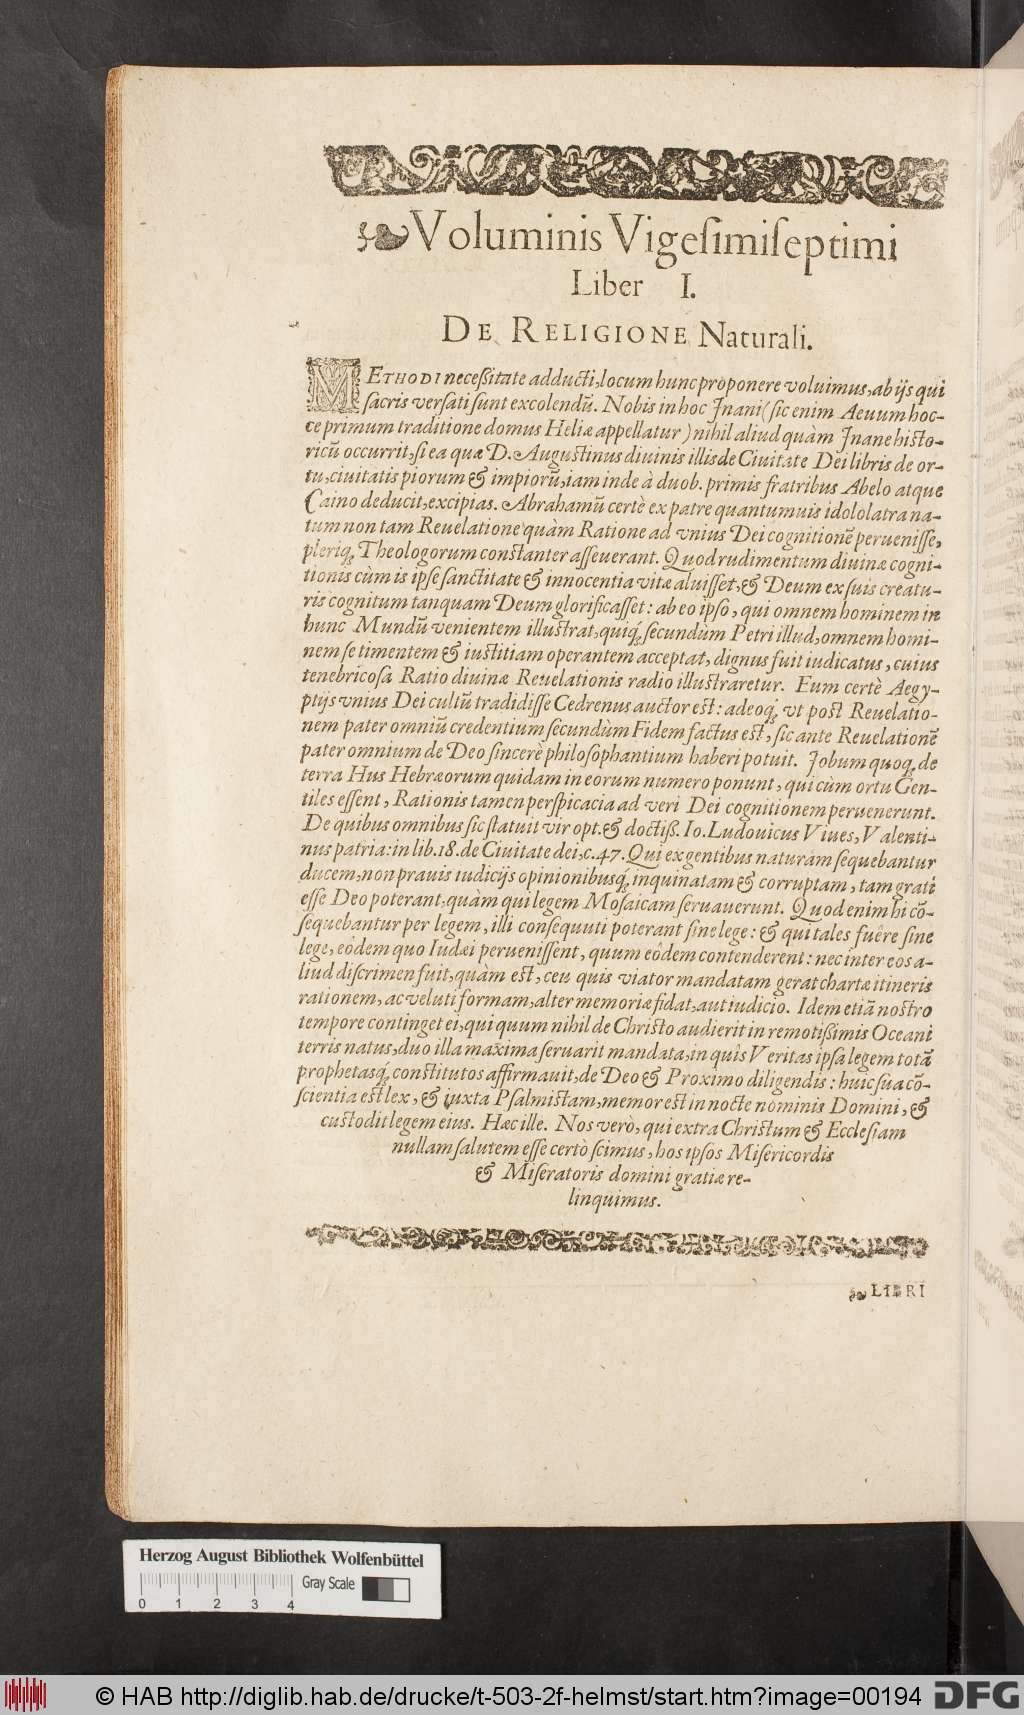 Voluminis Vigeſimiſeptimi
Liber I.
DE RELIGIONE Naturali.
METHODI neceßitate adducti, locum hunc proponere voluimus, ab ijs qui
ſacris verſati ſunt excolendũ. Nobis in hoc Jnani (ſic enim Aeuum hoc-
ce primum traditione domus Heliæ appellatur) nihil aliud quàm Jnane hiſto-
ricũ occurrit, ſi ea quæ D. Auguſtinus diuinis illis de Ciuitate Dei libris de or-
tu, ciuitatis piorum & impiorũ, iam inde à duob. primis fratribus Abelo atque
Caino deducit, excipias. Abrahamũ certè ex patre quantumuis idololatra na-
tum non tam Reuelatione quàm Ratione ad vnius Dei cognitionẽ perueniſſe,
pleriq; Theologorum conſtanter aſſeuerant. Quod rudimentum diuinæ cogni-
tionis cùm is ipſe ſanctitate & innocentia vitæ aluiſſet, & Deum ex ſuis creatu-
ris cognitum tanquam Deum glorificaſſet: ab eo ipſo, qui omnem hominem in
hunc Mundũ venientem illuſtrat, quiq; ſecundùm Petri illud, omnem homi-
nem ſe timentem & iuſtitiam operantem acceptat, dignus fuit iudicatus, cuius
tenebricoſa Ratio diuinæ Reuelationis radio illuſtraretur. Eum certè Aegy-
ptijs vnius Dei cultũ tradidiſſe Cedrenus auctor eſt: adeoq; vt poſt Reuelatio-
nem pater omniũ credentium ſecundùm Fidem factus eſt, ſic ante Reuelationẽ
pater omnium de Deo ſincerè philoſophantium haberi potuit. Jobum quoq; de
terra Hus Hebræorum quidam in eorum numero ponunt, qui cùm ortu Gen-
tiles eſſent, Rationis tamen perſpicacia ad veri Dei cognitionem peruenerunt.
De quibus omnibus ſic ſtatuit vir opt. & doctiß. Io. Ludouicus Viues, Valenti-
nus patria: in lib. 18. de Ciuitate dei, c. 47. Qui ex gentibus naturam ſequebantur
ducem, non prauis iudicijs opinionibusq; inquinatam & corruptam, tam grati
eſſe Deo poterant, quàm qui legem Moſaicam ſeruauerunt. Quod enim hi cõ-
ſequebantur per legem, illi conſequuti poterant ſine lege: & qui tales fuêre ſine
lege, eôdem quo Iudæi perueniſſent, quum eôdem contenderent: nec inter eos a-
liud diſcrimen fuit, quàm eſt, ceu quis viator mandatam gerat chartæ itineris
rationem, ac veluti formam, alter memoriæ fidat, aut iudicio. Idem etiã noſtro
tempore continget ei, qui quum nihil de Chriſto audierit in remotißimis Oceani
terris natus, duo illa maxima ſeruarit mandata, in quîs Veritas ipſa legem totã
prophetasq; conſtitutos affirmauit, de Deo & Proximo diligendis: huic ſua cõ-
ſcientia eſt lex, & iuxta Pſalmiſtam, memor eſt in nocte nominis Domini, &
cuſtodit legem eius. Hæc ille. Nos verò, qui extra Chriſtum & Eccleſiam
nullam ſalutem eſſe certò ſcimus, hos ipſos Miſericordis
& Miſeratoris domini gratiæ re-
linquimus.
LIBRI
Herzog August Bibliothek Wolfenbüttel
Gray Scale
0 1 2 3 4
© HAB http://diglib.hab.de/drucke/t-503-2f-helmst/start.htm?image=00194
DFG